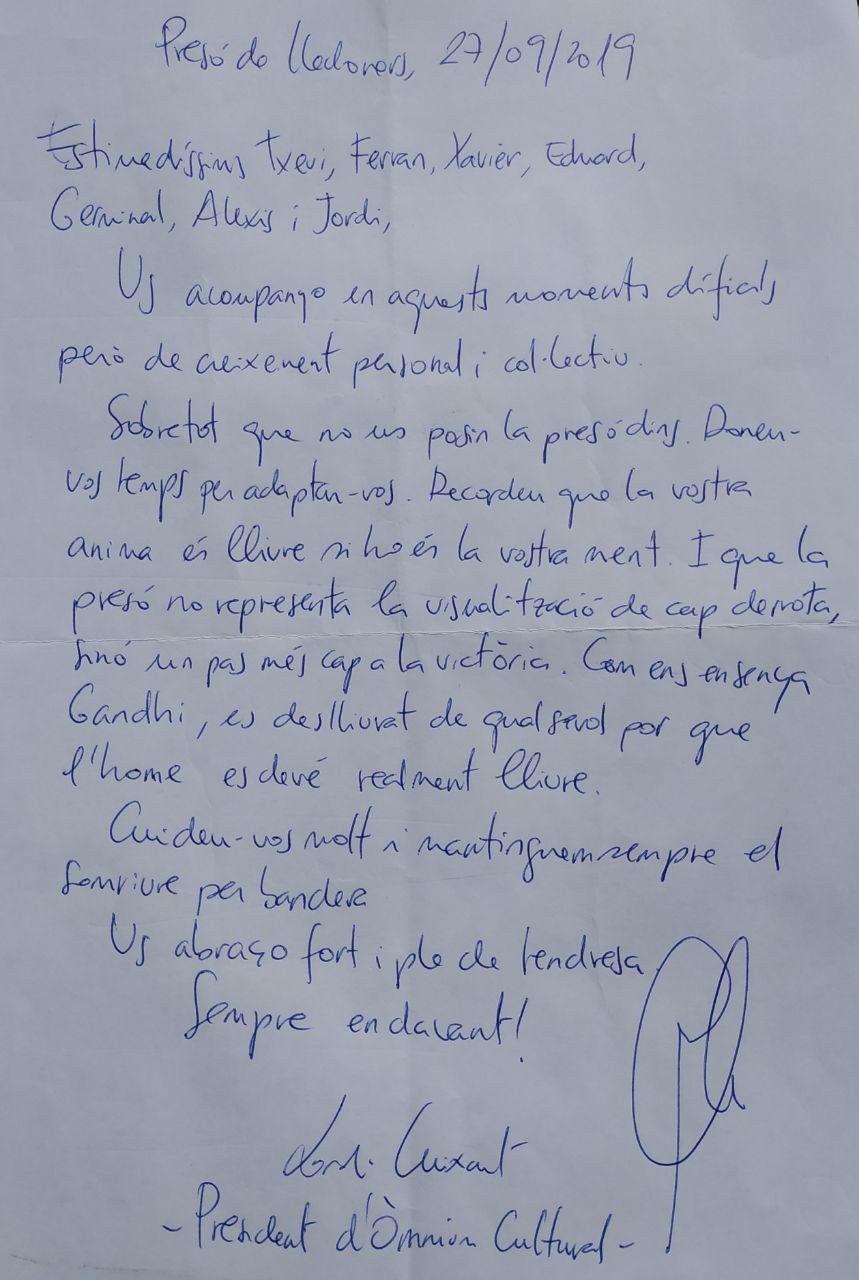 Presó de Lledoners, 27/09/2019
Estimadíssims Txevi, Ferran, Xavier, Eduard,
Germinal, Alexis i Jordi,
Us acompanyo en aquests moments difícils
però de creixement personal i col·lectiu.
Sobretot que no us posin la presó dins. Doneu-
vos temps per adaptar-vos. Recordeu que la vostra
anima és lliure si ho és la vostra ment. I que la
presó no representa la visualització de cap derrota,
sinó un pas més cap a la victòria. Com ens ensenya
Gandhi, es deslliurat de qualsevol por que
l'home esdevé realment lliure.
Cuideu-vos molt i mantinguem sempre el
somriure per bandera
Us abraço fort i ple de tendresa
Sempre endavant!
Jordi Cuixart
- President d'Òmnium Cultural -